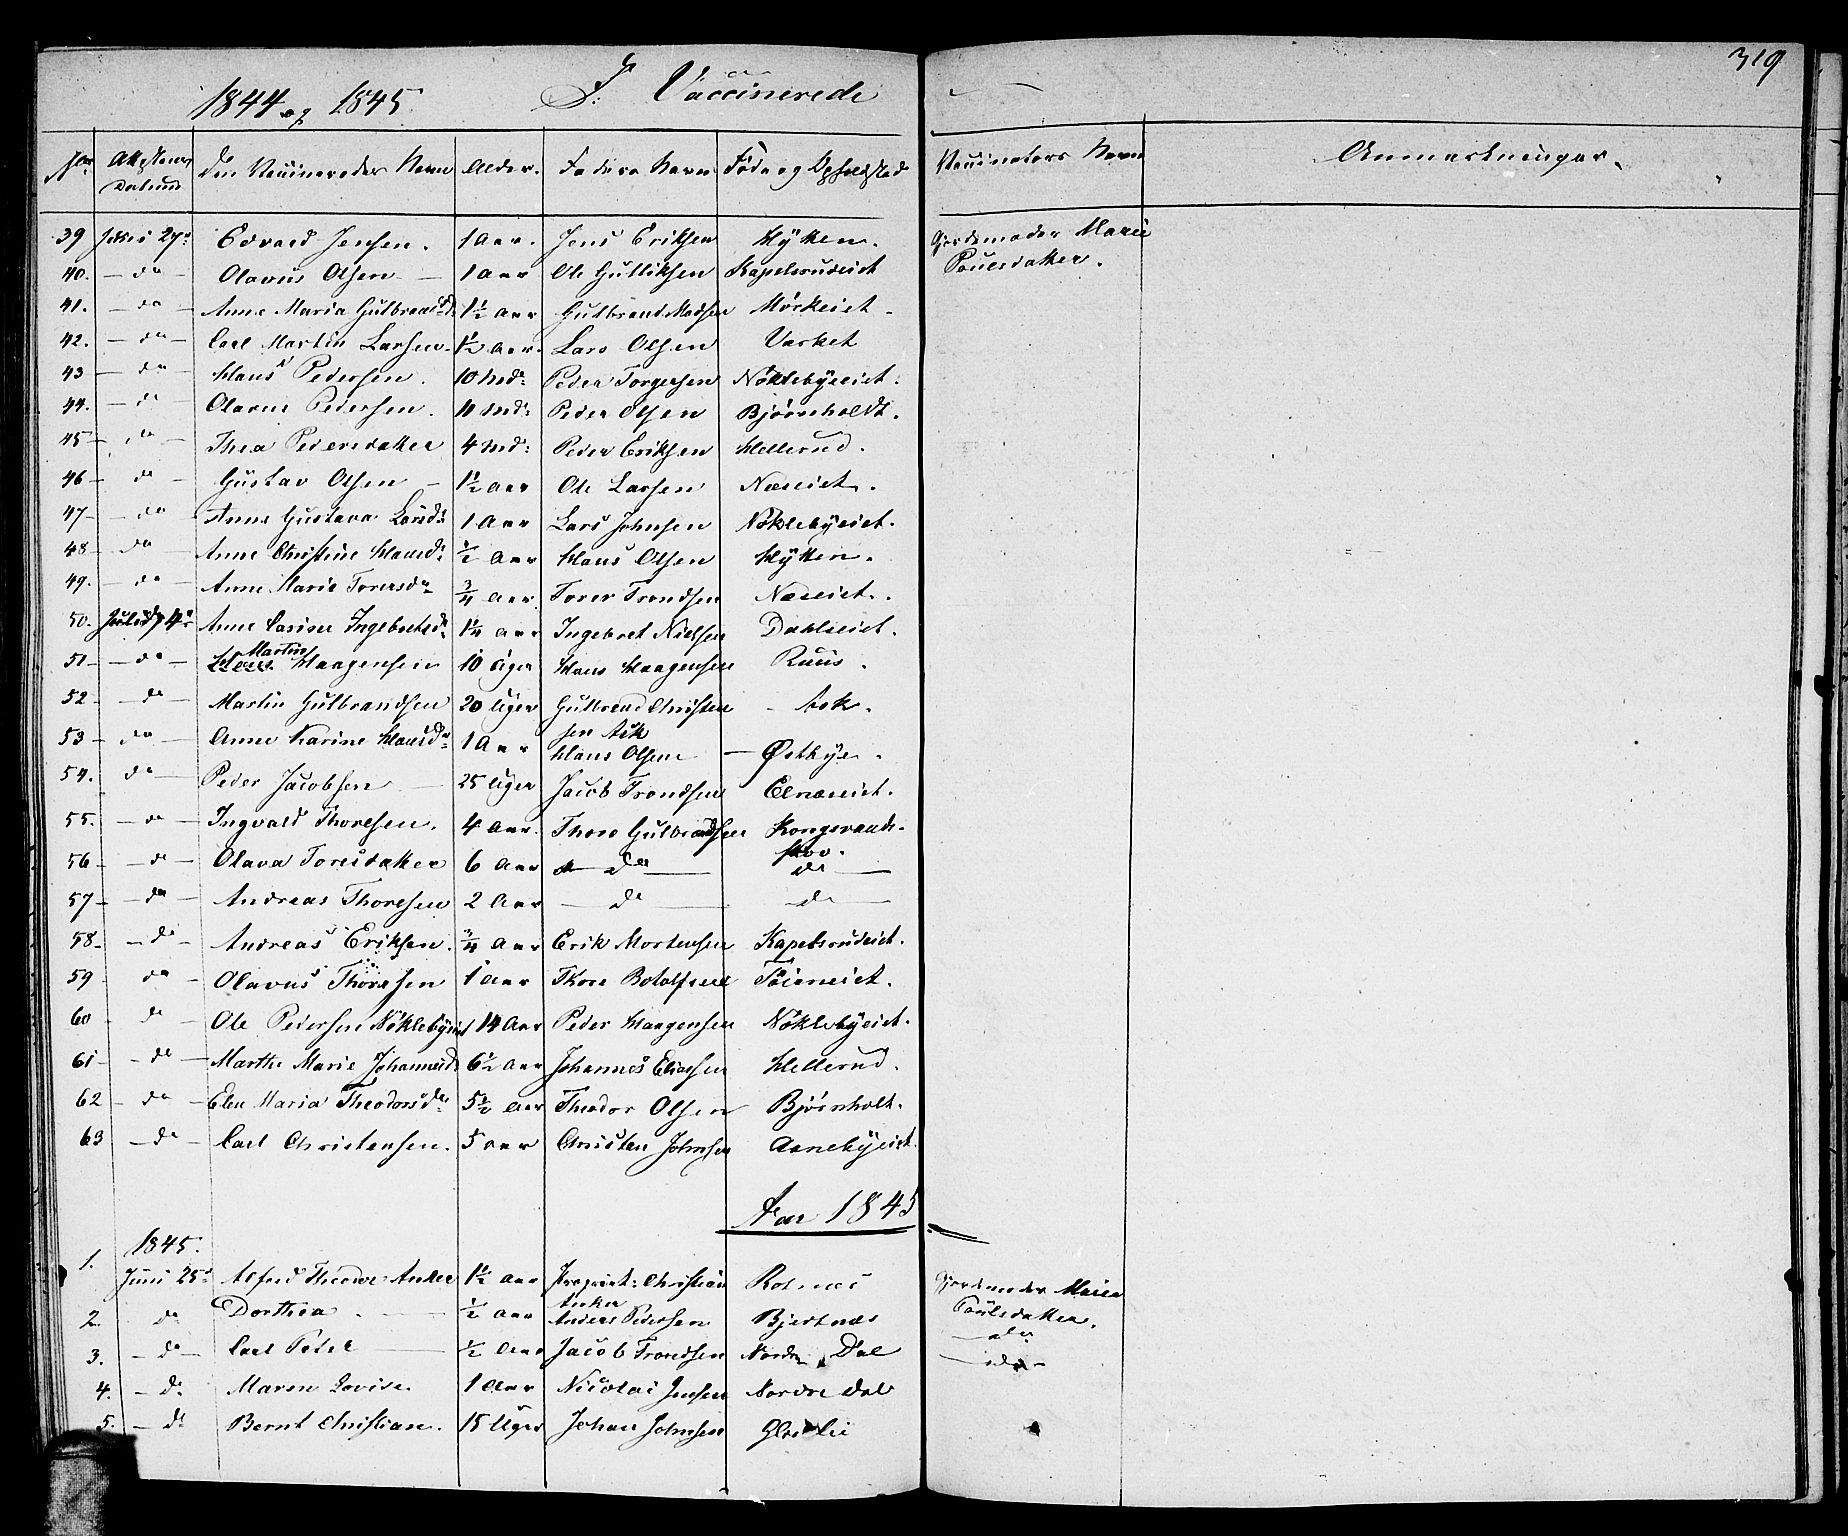 319
1844 og 1845. F: Vaccinerede
No Attestens Datum den Vaccineredes Navn Alder. Faderens Navn Føde og Opholdssted Vaccinators Navn Anmærkninger.
39 27de Edvard Jensen. 1 Aar. Jens Eriksen Hytten. Gjordemoder Marie
40. — do — Olavus Olsen — 1 Aar Ole Gulliksen Kapelsrudeiet Poulsdatter.
41. — do — Anne Maria Gulbrandsd. 1½ Aar Gulbrand Madsen Mørkeiet.
42. — do — Carl Martin Larsen. 1½ Aar. Lars Olsen Varket
43 — do — Hans Pedersen. 10 Md: Peder Torgersen Nøklebyeiet.
44. — do — Olavus Pedersen. 11 Md: Peder Olsen Bjørnholdt.
45 — do — Thea Pedersdatter 4 Md: Peder Eriksen Hellerud.
46 — do — Gustav Olsen — 1½ Aar Ole Larsen Næseiet.
47 — do — Anne Gustava Larsd: 1 Aar Lars Johnsen Nøklebyeiet.
48 — do — Anne Christine Hansd: ½ Aar Hans Olsen Hytten.
49. — do — Anne Marie Torersdr ¾ Aar. Torer Trondsen Næseiet.
50. 4de Anne Carine Ingebretsd: 1¼ Aar Ingebret Nielsen Dahlseiet.
51 — do — Martin
Hans Haagensen 10 Uger Hans Haagensen Ruus.
52 — do — Martin Gulbrandsen 20 Uger Gulbrand Christen — Ask.
sen Ask
53 — do — Anne Karine Hansdr 1 Aar Hans Olsen — Østbye.
54. do — Peder Jacobsen — 25 Uger Jacob Trondsen Elnæseiet.
55. — do — Ingvald Thoresen. 4 Aar. Thore Gulbrandsen Kongsrands-
skov.
56 — do — Olava Toresdatter 6 Aar — do — do —
57 — do — Andreas Thoresen 2 Aar — do — do —
58 — do — Andreas Eriksen. ¾ Aar Erik Mortensen Kapelsrudeiet.
59 do — Olavus Thoresen 1 Aar Thore Botolfsen Tøieneiet.
60 — do — Ole Pedersen Nøklebyeiet 14 Aar Peder Haagensen Nøklebyeiet.
61 — do — Marthe Marie Johannesd. 6½ Aar Johannes Eliassen Hellerud.
62 — do — Elen Maria Theodorsdr 5½ Aar Theodor Olsen Bjørnholt.
63 — do — Carl Christensen. 5 Aar Christen Johnsen Aanebyeiet.
Aar 1845
1845.
1. Juni 25de Alfred Theodor Anker 1½ Aar Propriet: Christian Rotnæs Gjordemoder Maria
Anker Poulsdatter.
2. do Dorthea. — ½ Aar Anders Pedersen Bjertnæs — do —
3. — do — Carl Peter — ½ Aar Jacob Trondsen Nordre Dal — do —
4. — do Maren Lovise. 1 Aar Nicolai Jensen Nordre Dal
5. — do Bernt Christian. 15 Uger Johan Johnsen